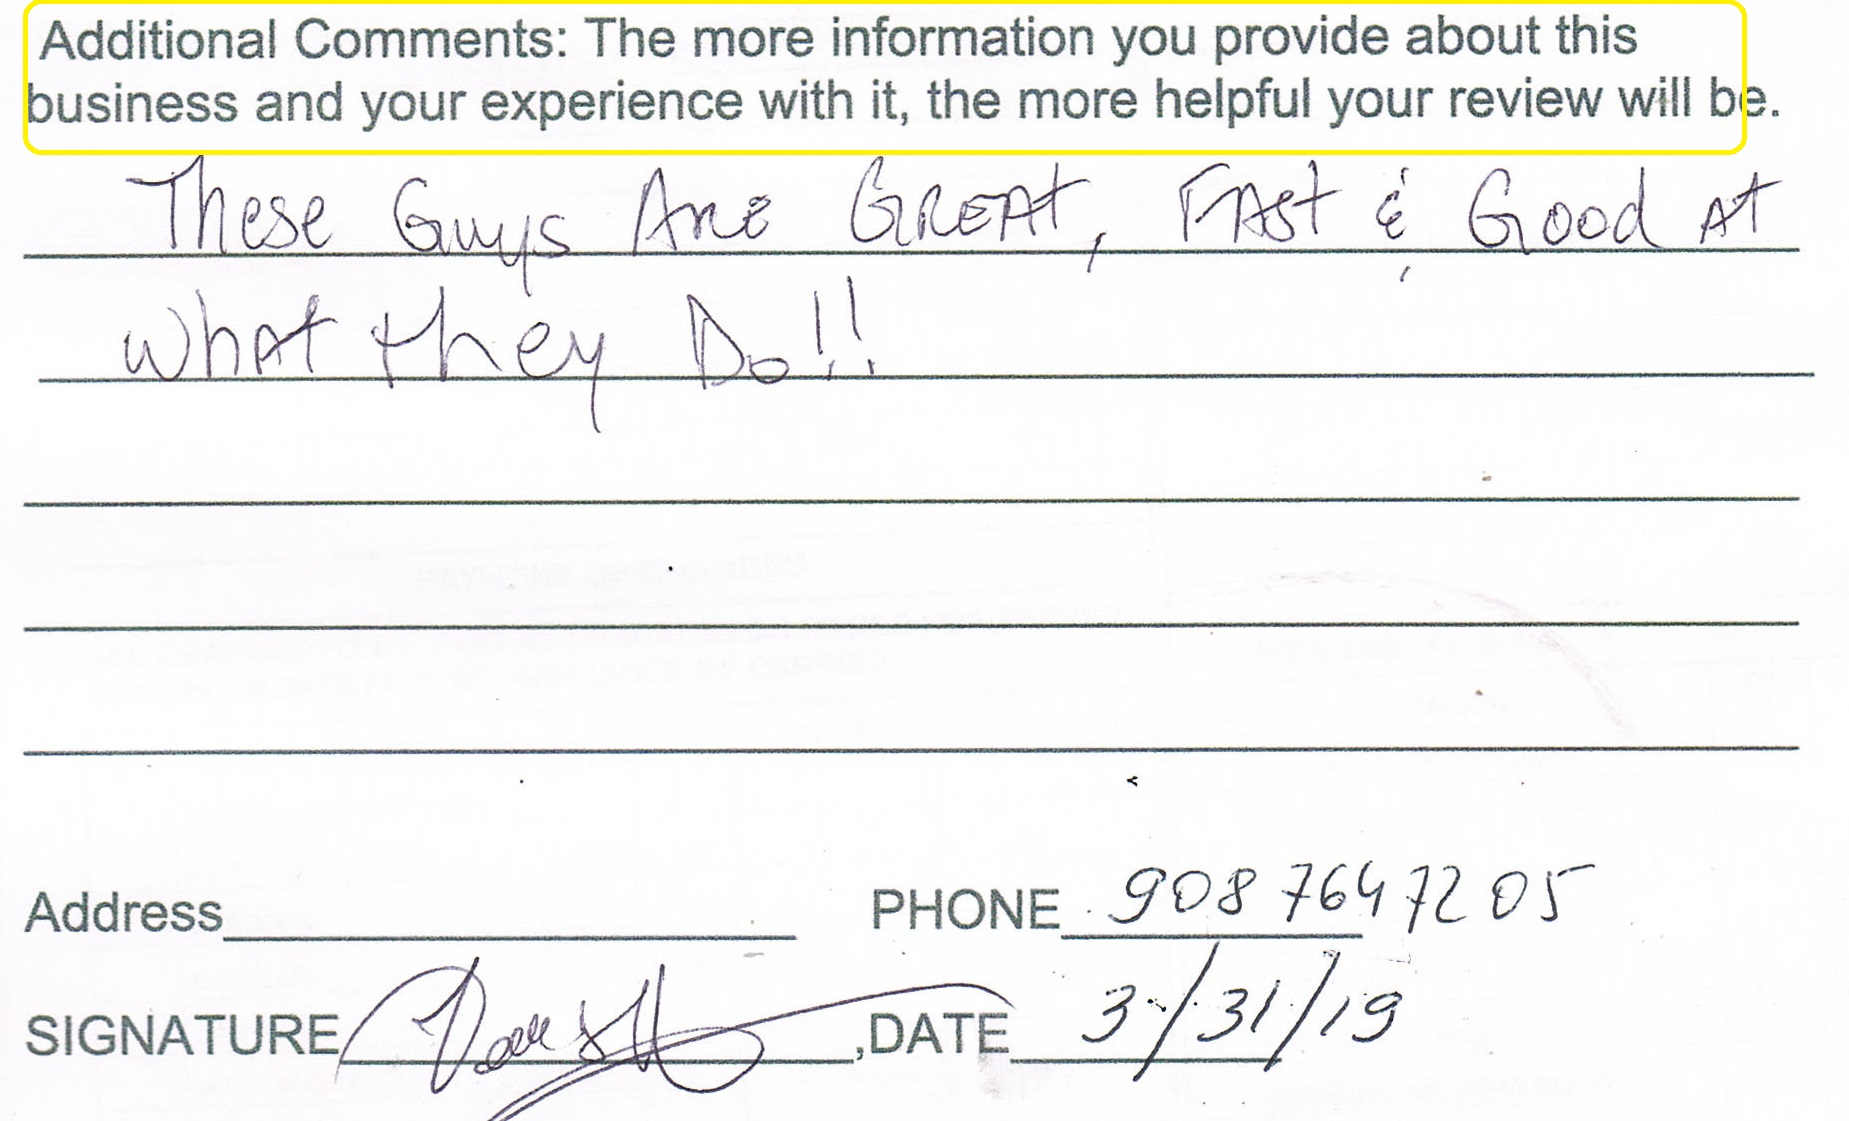 Additional Comments: The more information you provide about this
business and your experience with it, the more helpful your review will be.
These Guys ARE GREAT, FAST & Good AT
what they Do!!
Address PHONE 908 764 7205
SIGNATURE ,DATE 3/31/19